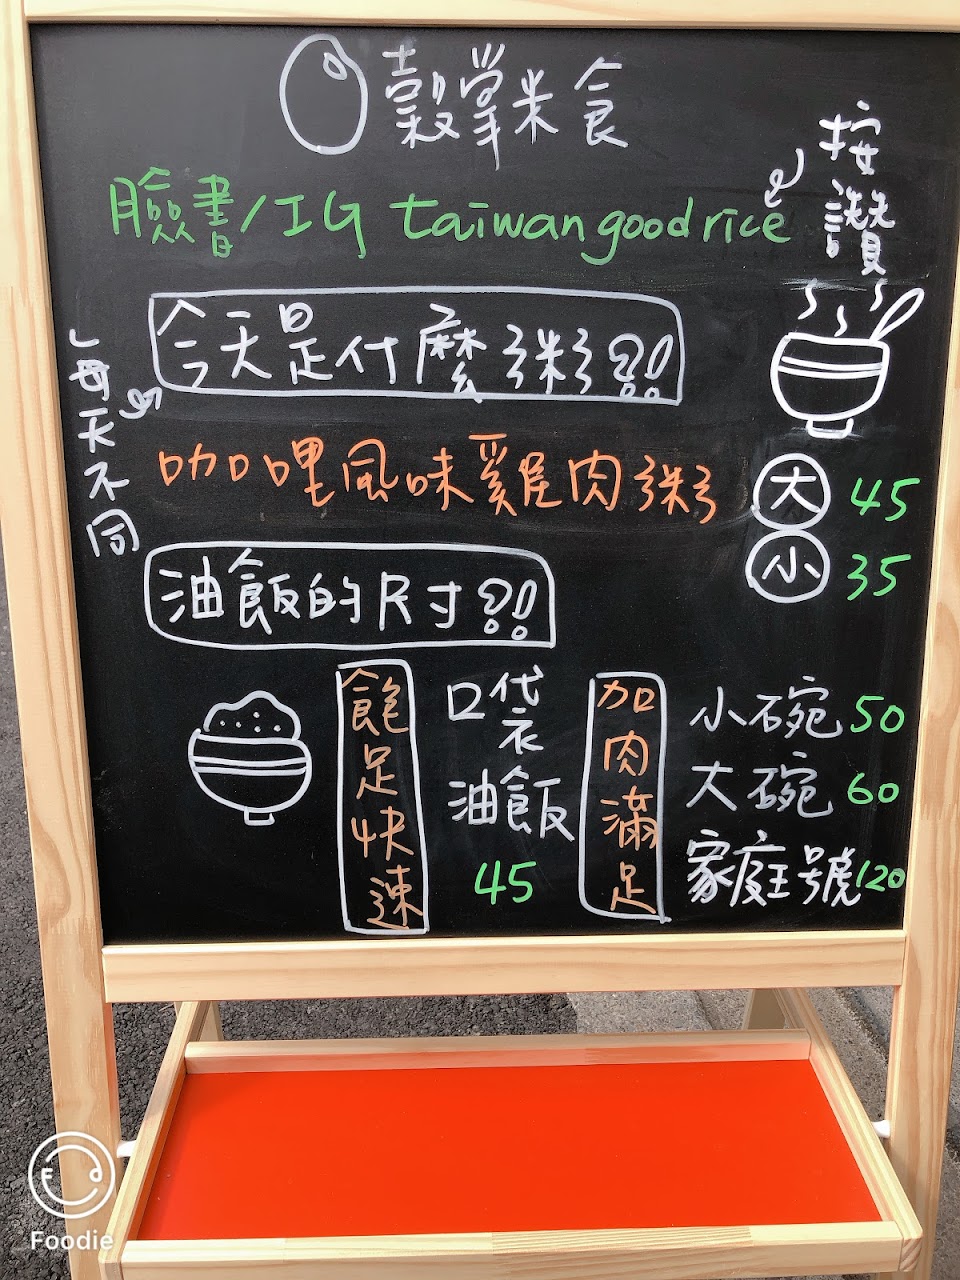 穀掌米食
按讚
臉書/IG taiwangoodrice
今天是什麼粥?!
每天不同
咖哩風味雞肉粥
大 45
小 35
油飯的尺寸?!
飽足快速
口袋
油飯
45
加肉滿足
小碗 50
大碗 60
家庭號 120
Foodie